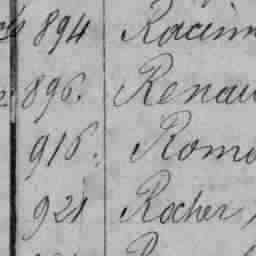 894 Racin
896. Renau
916. Rome
921 Rocher,